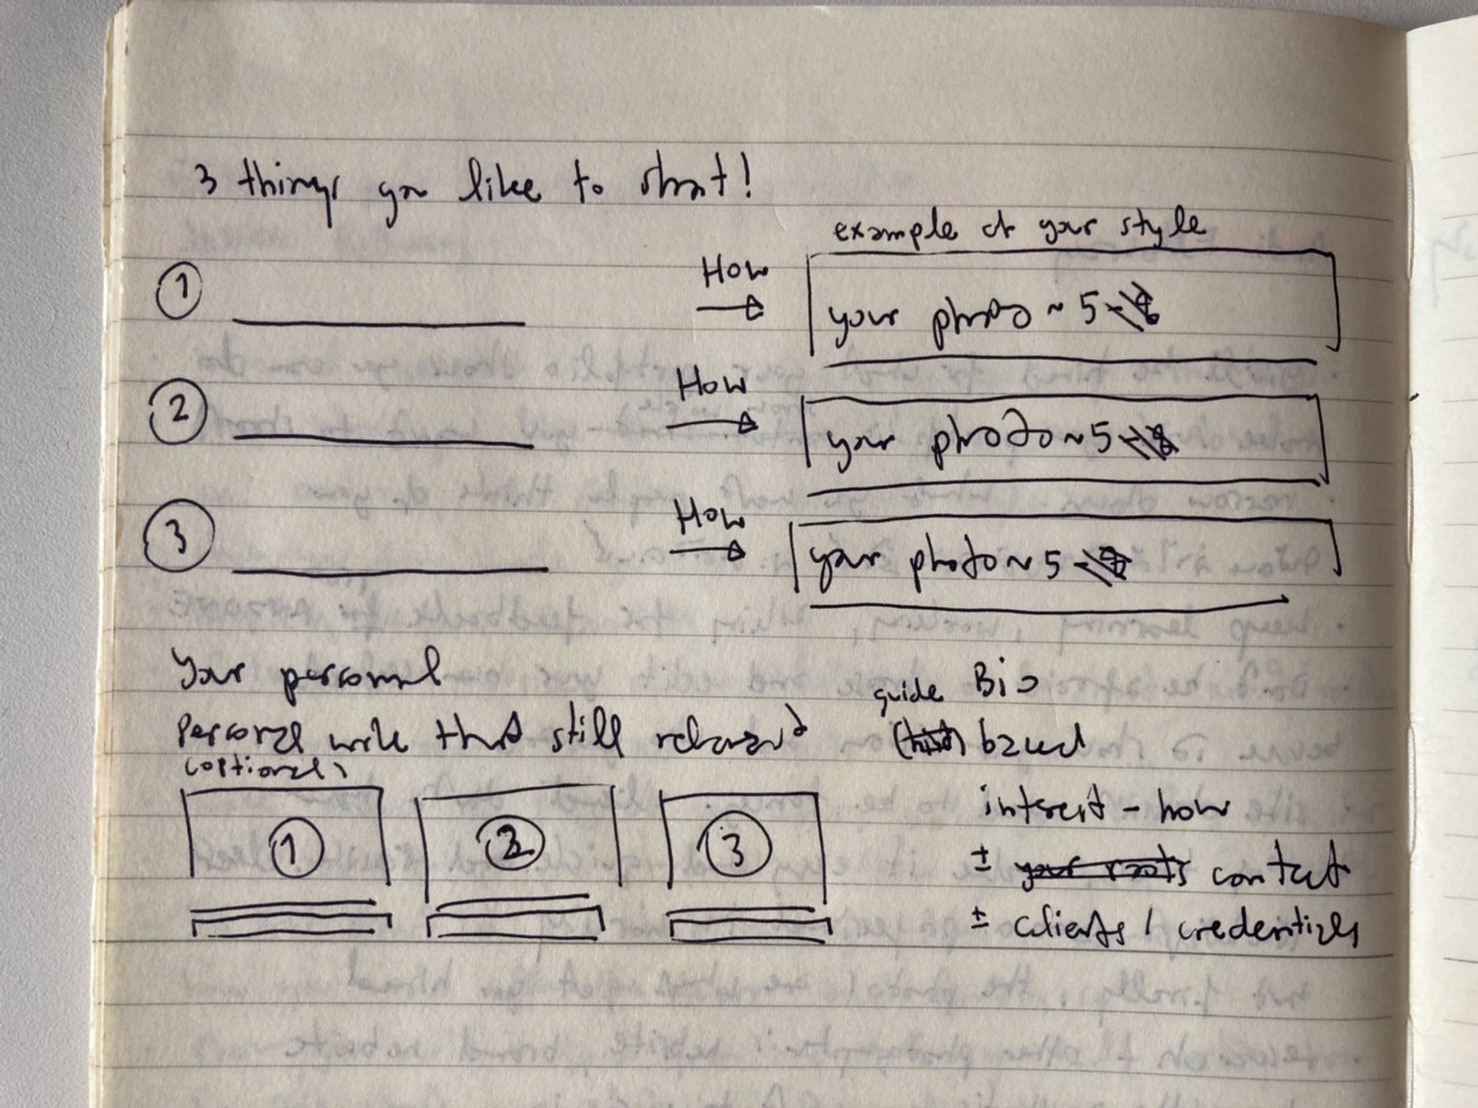 3 things you like to shoot!
example of your style
1 How your photo ~ 5
2 How your photo ~ 5
3 How your photo ~ 5
Your personal
Personal work that still relevant
(optional)
guide Bio
based
interest - how
± your roots contact
± clients / credentials
1 2 3